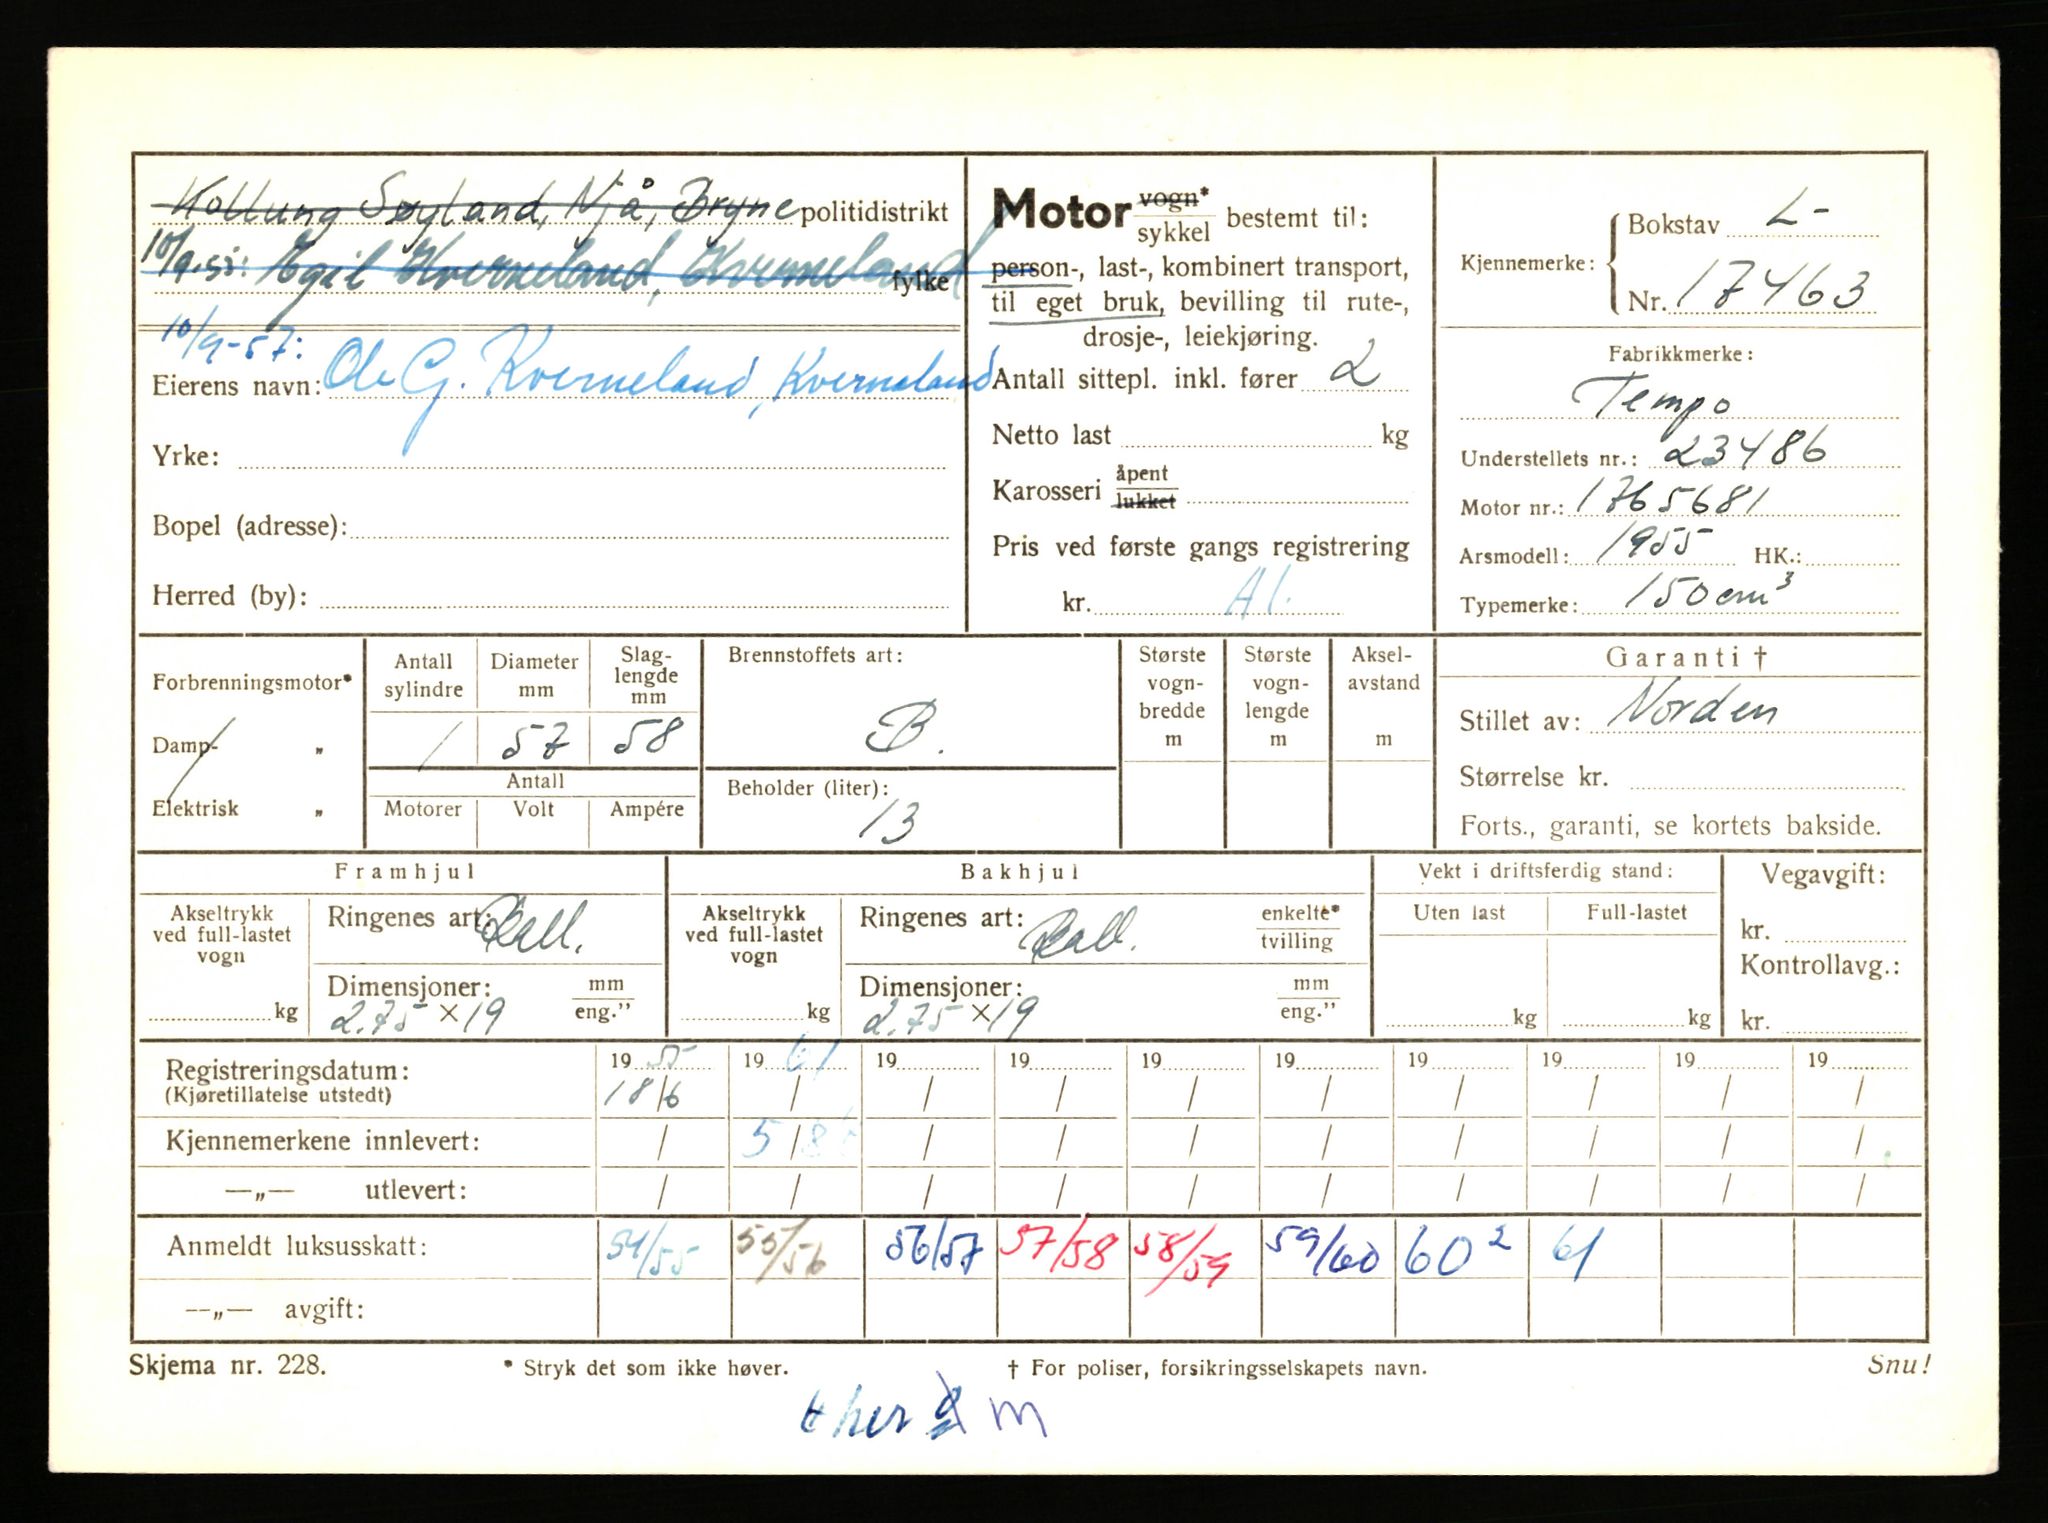 Kollung Søyland, Njå, Bryne politidistrikt
10/9.55: Egil Kverneland, Kverneland fylke
10/9-57:
Eierens navn: Ole G. Kverneland, Kverneland
Yrke:
Bopel (adresse):
Herred (by):
Motor vogn* / sykkel bestemt til:
person-, last-, kombinert transport,
til eget bruk, bevilling til rute-,
drosje-, leiekjøring.
Antall sittepl. inkl. fører 2
Netto last kg
Karosseri åpent / lukket
Pris ved første gangs registrering
kr. Al.
Kjennemerke: Bokstav L-
Nr. 17463
Fabrikkmerke:
Tempo
Understellets nr.: 23486
Motor nr.: 1765681
Arsmodell: 1955 HK.:
Typemerke: 150 cm³
Forbrenningsmotor*
Damp- „
Elektrisk „
Antall sylindre Diameter mm Slag-lengde mm
1 57 58
Antall
Motorer Volt Ampére
Brennstoffets art:
B.
Beholder (liter):
13
Største vogn-bredde m
Største vogn-lengde m
Aksel-avstand m
Garanti †
Stillet av: Norden
Størrelse kr.
Forts., garanti, se kortets bakside.
Framhjul
Akseltrykk ved full-lastet vogn kg
Ringenes art: Ball.
Dimensjoner: mm / eng.”
2.75 × 19
Bakhjul
Akseltrykk ved full-lastet vogn kg
Ringenes art: Ball. enkelte* / tvilling
Dimensjoner: mm / eng.”
2.75 × 19
Vekt i driftsferdig stand:
Uten last Full-lastet
kg kg
Vegavgift:
kr.
Kontrollavg.:
kr.
Registreringsdatum: 19 55 19 61 19 19 19 19 19 19 19 19
(Kjøretillatelse utstedt) 18/6 / / / / / / / / /
Kjennemerkene innlevert: / 5/8 / / / / / / / /
—„— utlevert: / / / / / / / / / /
Anmeldt luksusskatt: 54/55 55/56 56/57 57/58 58/59 59/60 60² 61
—„— avgift:
Skjema nr. 228. * Stryk det som ikke høver. † For poliser, forsikringsselskapets navn. Snu!
her m